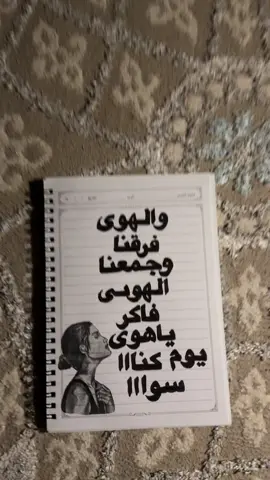 والهوى
فرقنا
وجمعنا
الهوى
فاكر
ياهوى
يوم كنااا
سوااا